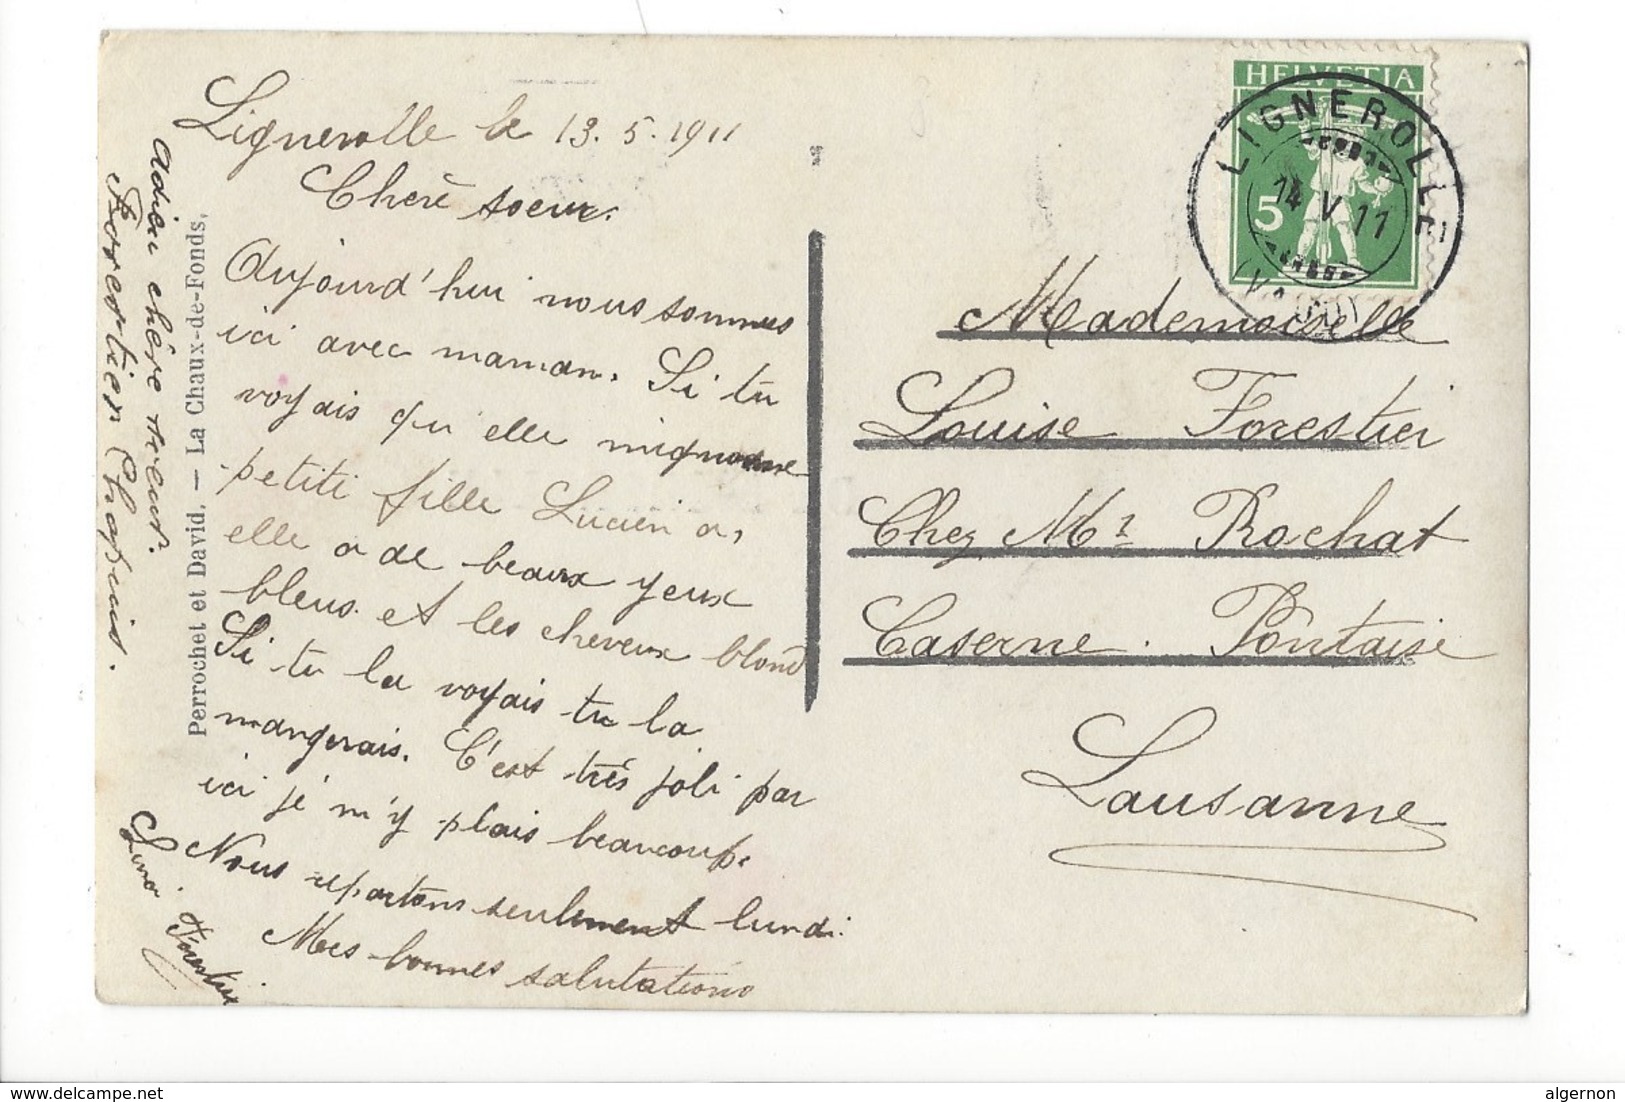 Lignerolle le 13.5.1911
Chère soeur.
Aujourd'hui nous sommes
ici avec maman. Si tu
voyais qu'elle mignonne
petite fille Lucien a,
elle a de beaux yeux
bleus et les cheveux blond
Si tu la voyais tu la
mangerais. C'est très joli par
ici je m'y plais beaucoup.
Nous repartons seulement lundi.
Mes bonnes salutations
Forestier
adieu chère soeur.
Chapuis.
Perrochet et David, — La Chaux-de-Fonds,
HELVETIA
5
LIGNEROLLE
14 V 11
(VAUD)
Mademoiselle
Louise Forestier
Chez Mr Rochat
Caserne. Pontaise
Lausanne
delcampe.net
algernon